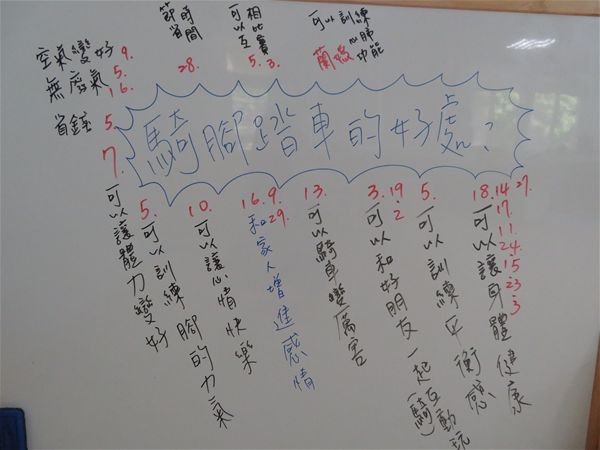 節省時間
28.
可以互相比賽
5. 3.
可以訓練心肺功能
空氣變好 9.
無廢氣 5.
16.
省錢 5.
騎腳踏車的好處？
7.
可以讓體力變好
5.
可以訓練腳的力氣
10.
可以讓心情快樂
16. 9. 29.
和家人增進感情
13.
可以騎車變厲害
3. 19. 2.
可以和好朋友一起互動玩(騎)
5.
可以訓練平衡感
18. 14. 27. 17. 11. 24. 15. 23. 3
可以讓身體健康